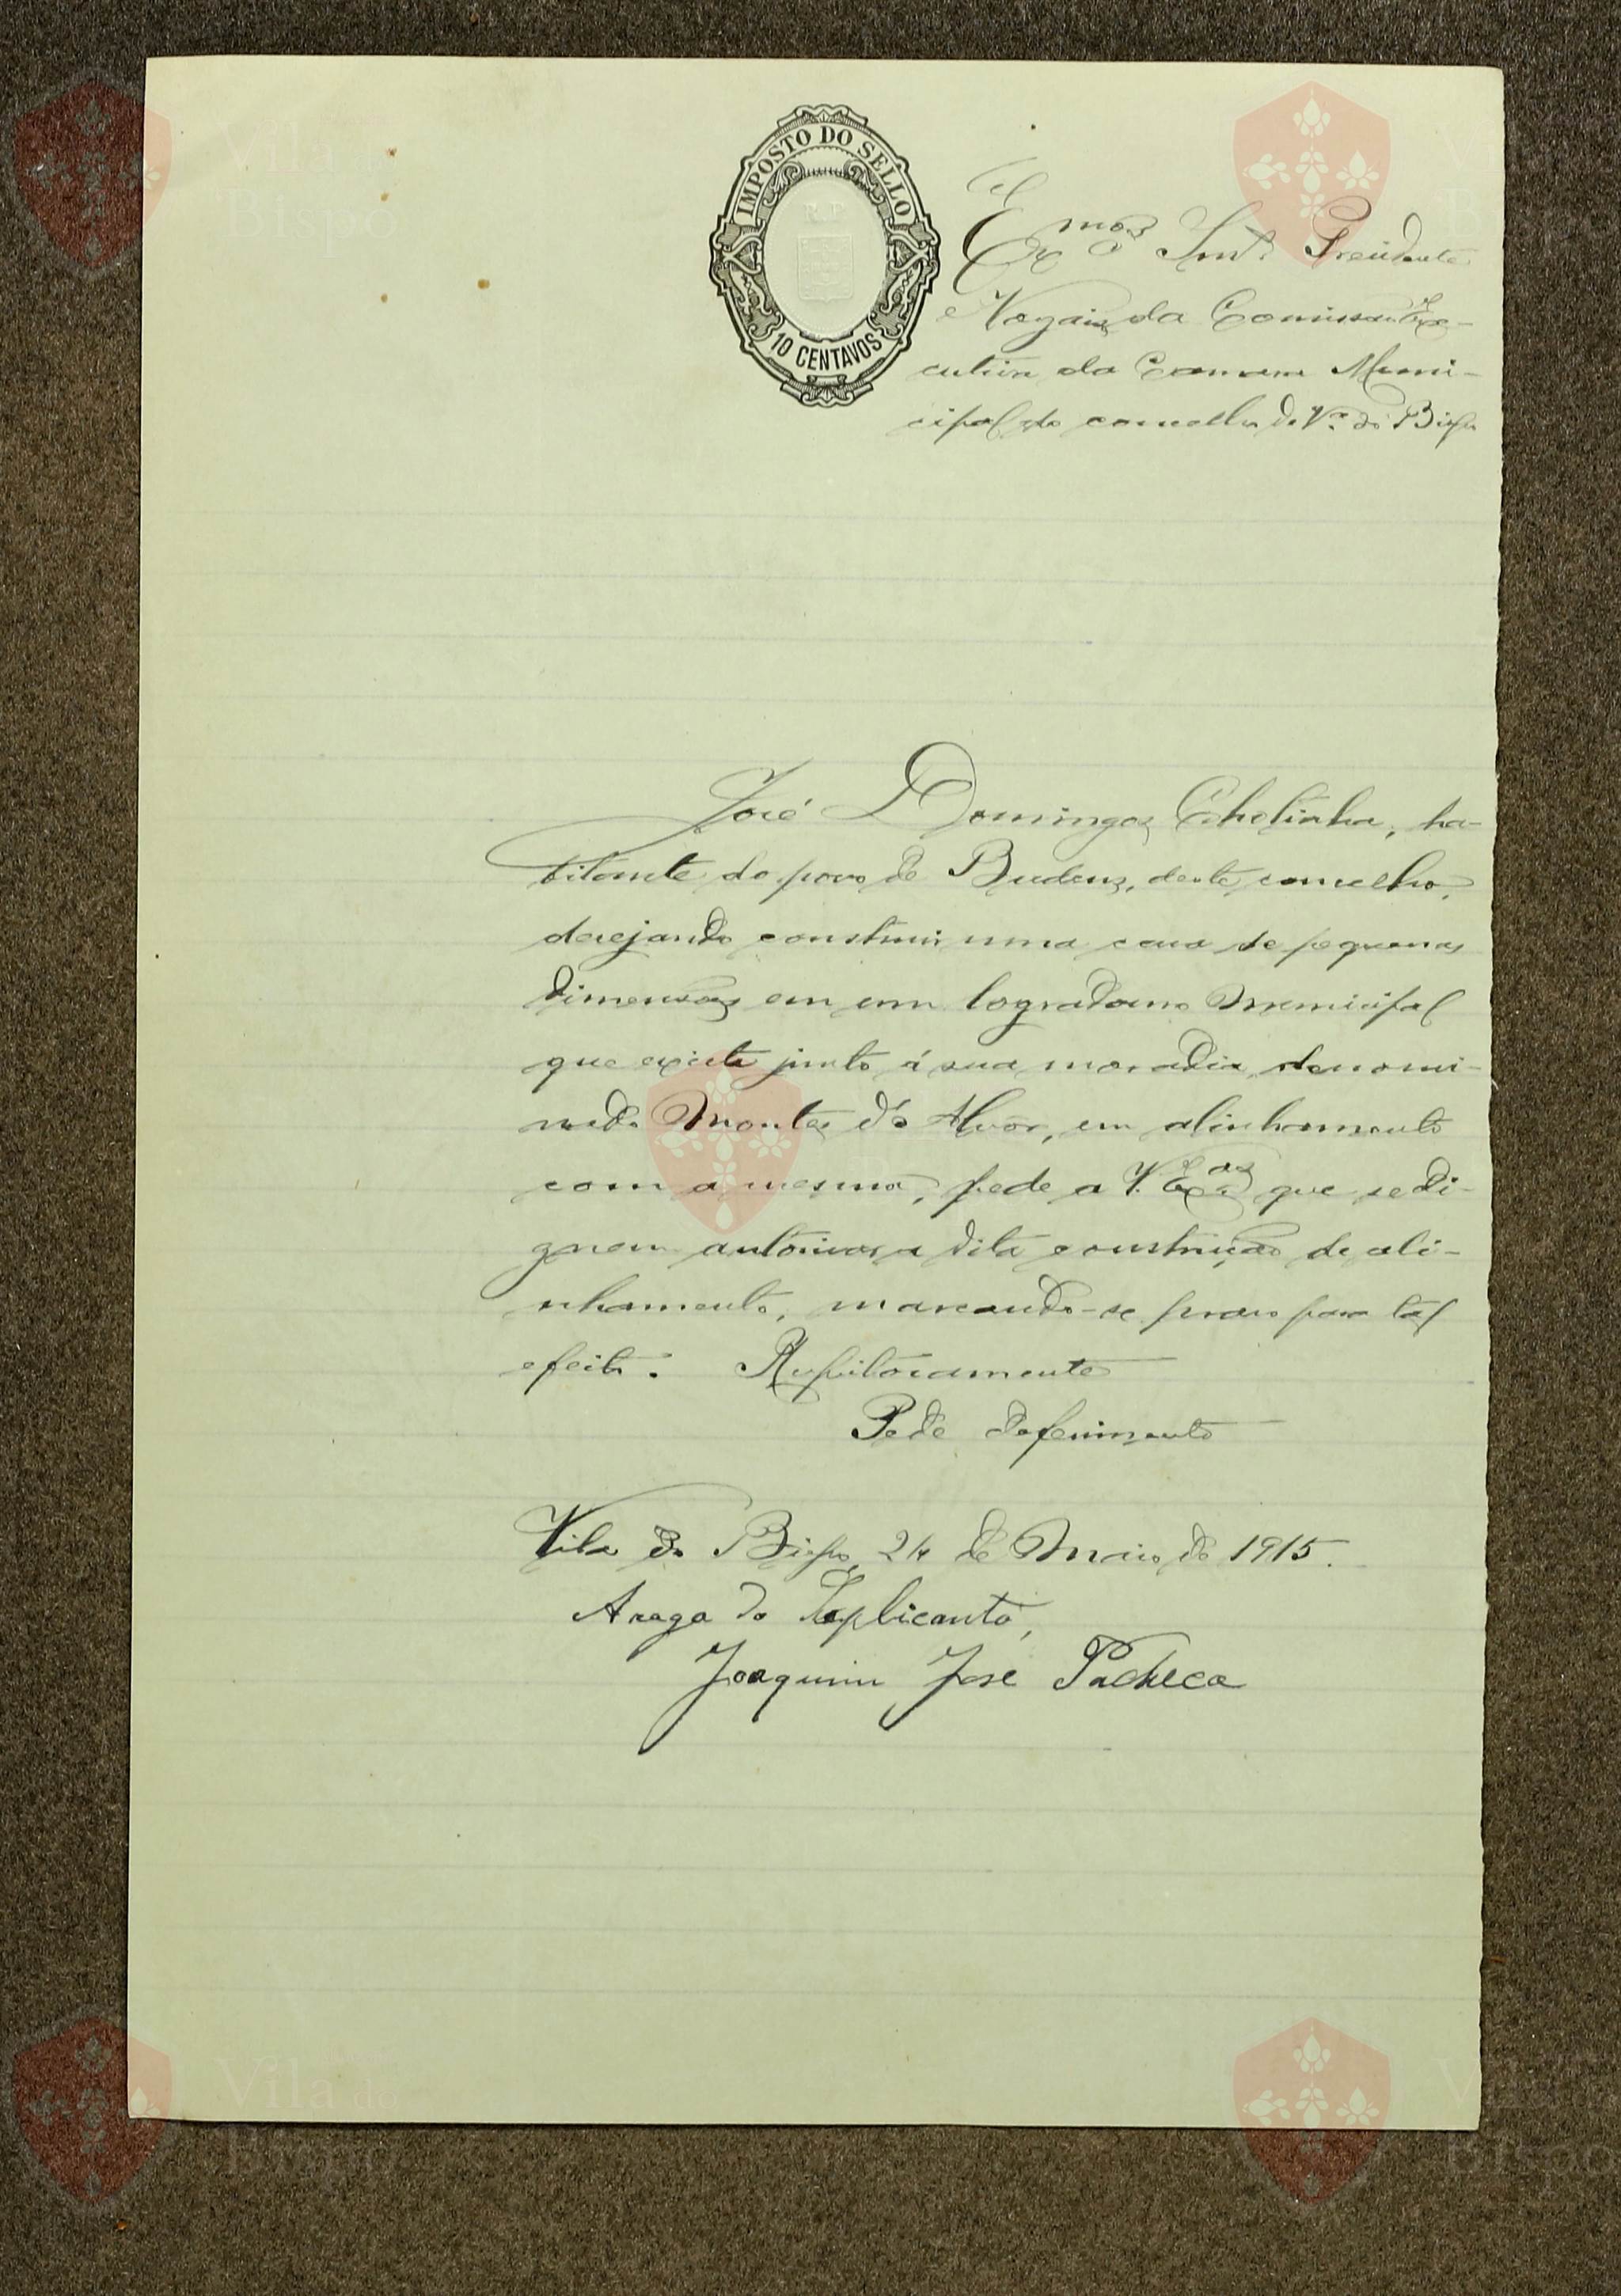 IMPOSTO DO SELLO
10 CENTAVOS
Ex.mos Snrs. Presidente
e Vogais da Comissão Exe-
cutiva da Camara Muni-
cipal do concelho de Vª. do Bispo
José Domingos, ha-
bitante do povo de Budens, deste concelho,
desejando construir uma casa de pequenas
dimensões em um logradouro Municipal
que existe junto á sua moradia, denomi-
nado Montes de Alvor, em alinhamento
com a mesma, pede a V. Ex.as que se di-
gnem autorisar a dita construção de ali-
nhamento, marcando-se praso para tal
efeito. Respeitosamente
Pede deferimento
Vila do Bispo, 24 de Maio de 1915.
Arogo do Suplicante,
Joaquim José Pacheco
Vila do
Bispo
Vila do
Bispo